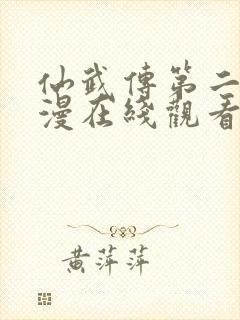 仙武傳第二
漫在綫觀看
黄萍萍